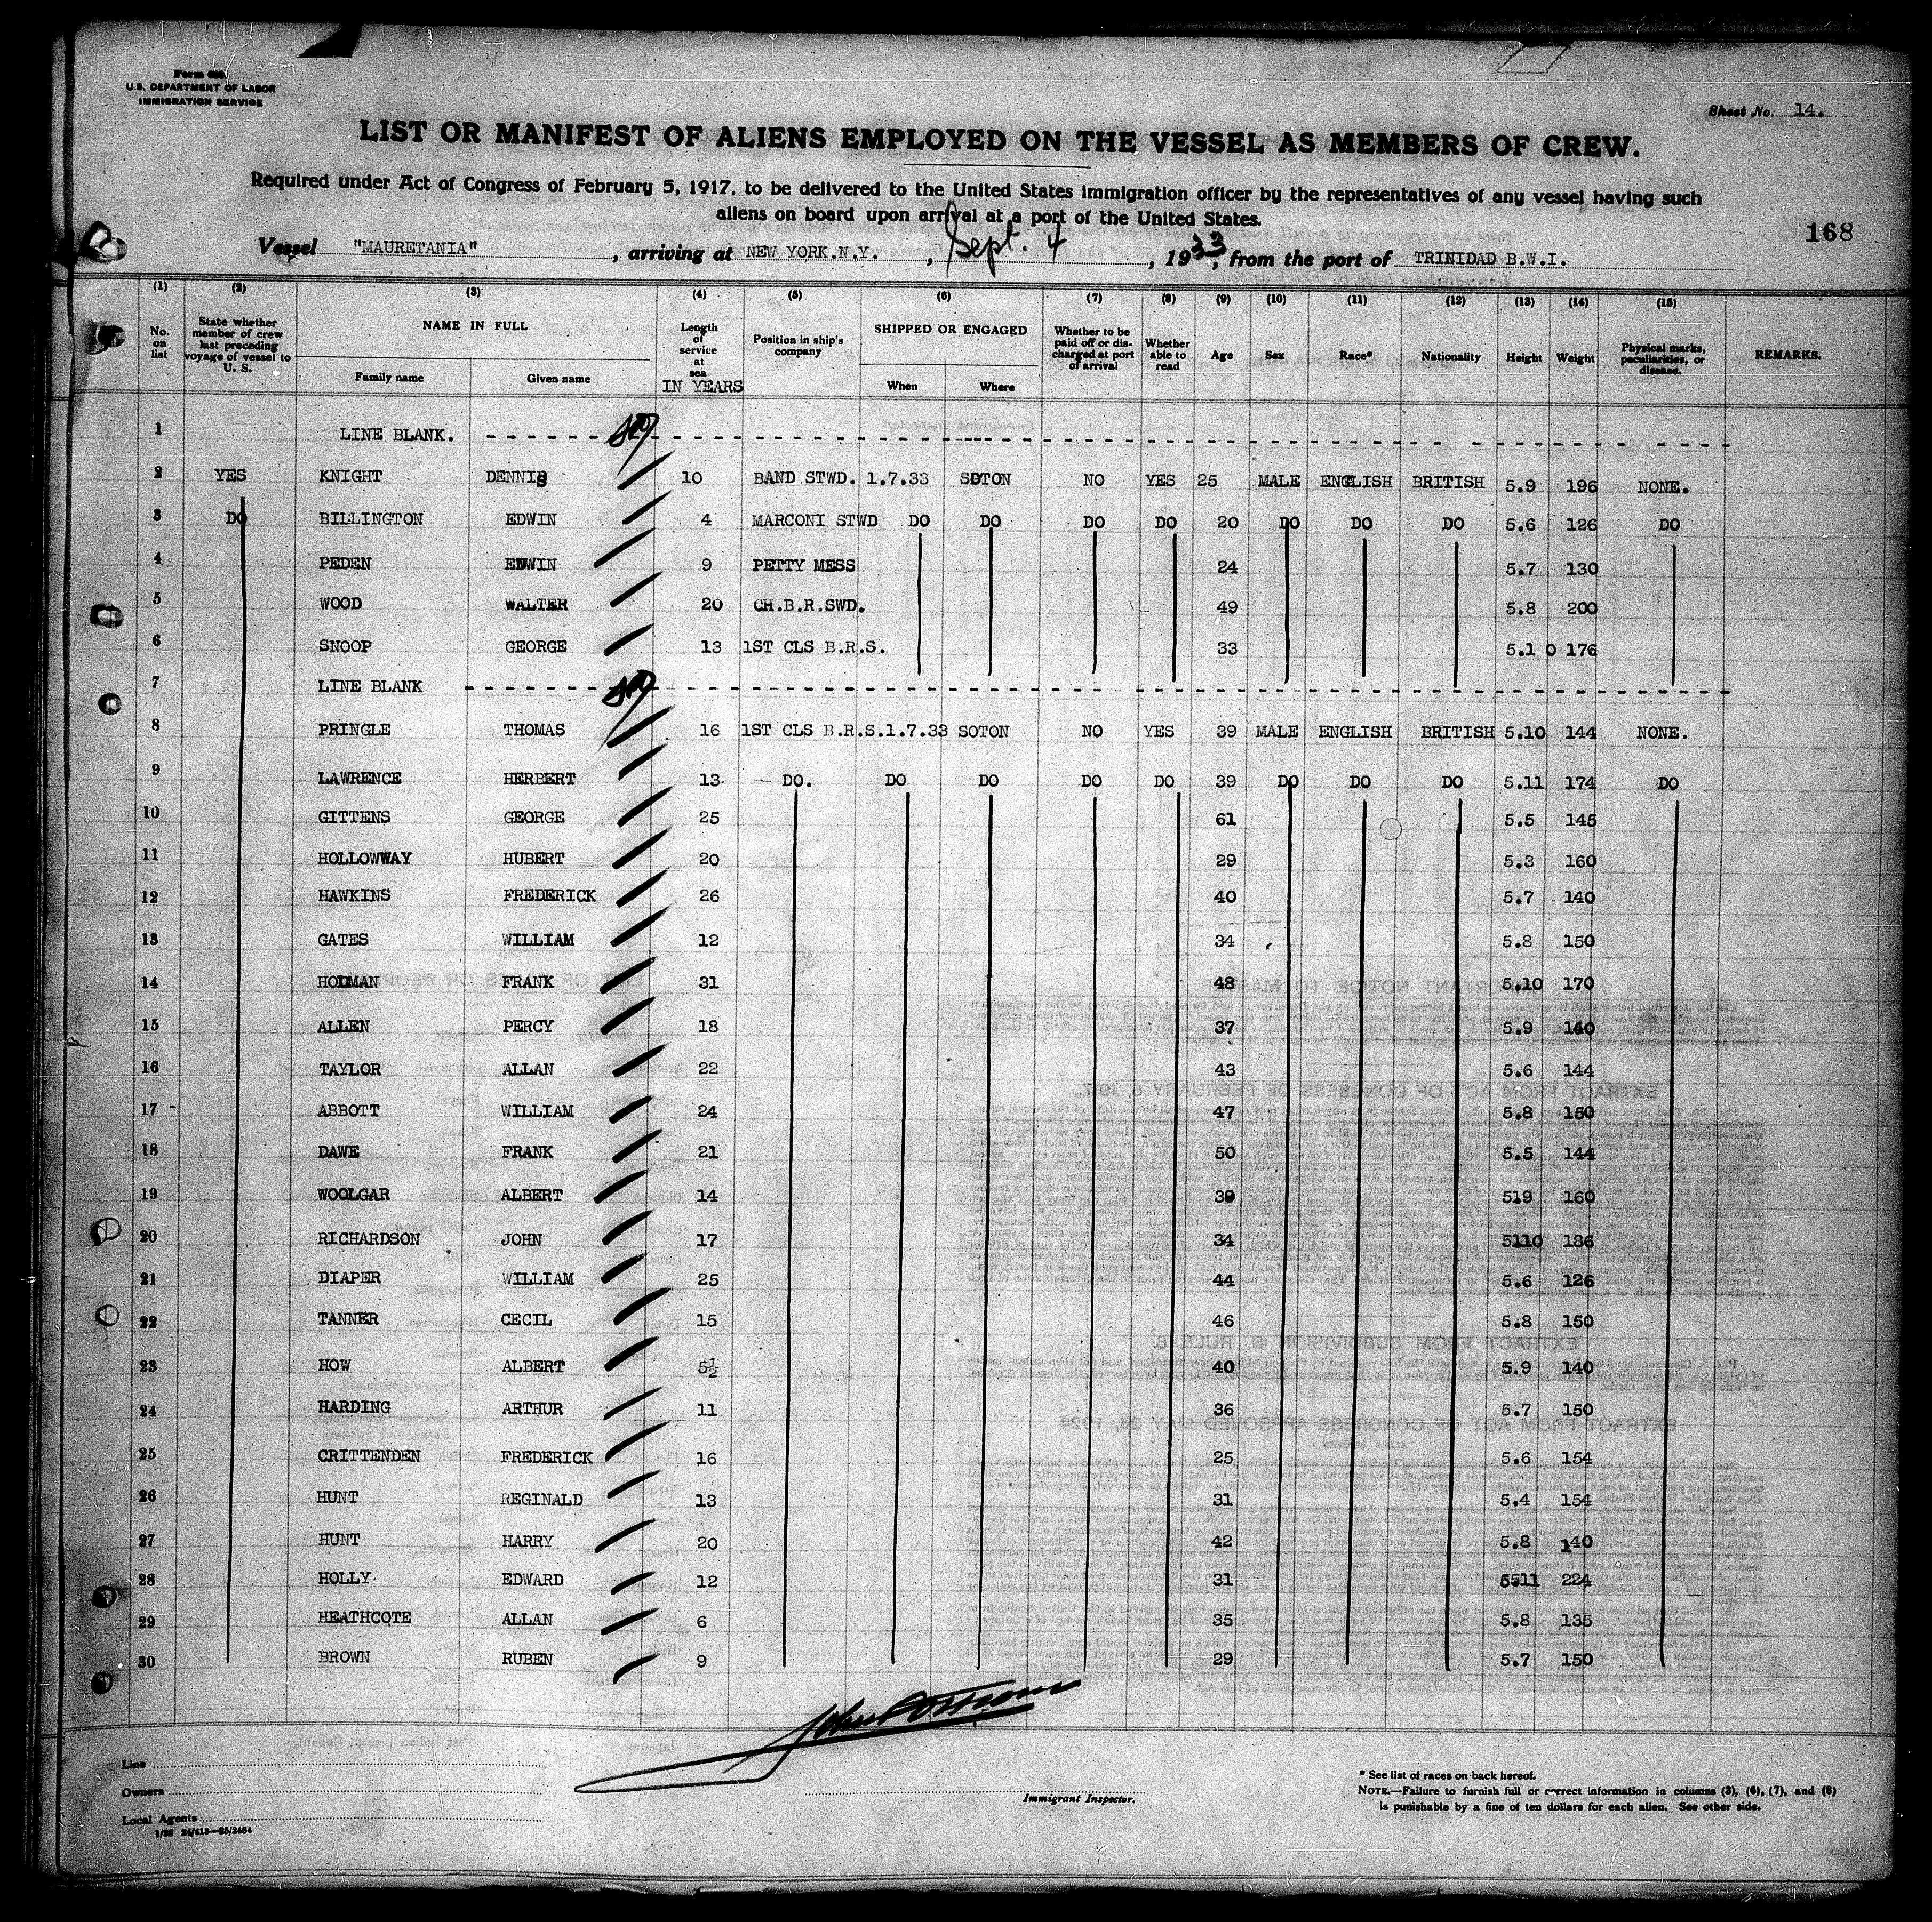 Form 680
U.S. DEPARTMENT OF LABOR
IMMIGRATION SERVICE
Sheet No. 14.
LIST OR MANIFEST OF ALIENS EMPLOYED ON THE VESSEL AS MEMBERS OF CREW.
Required under Act of Congress of February 5, 1917, to be delivered to the United States immigration officer by the representatives of any vessel having such
aliens on board upon arrival at a port of the United States.
168
Vessel "MAURETANIA", arriving at NEW YORK.N.Y., Sept. 4, 1933, from the port of TRINIDAD B.W.I.
(1) (2) (3) (4) (5) (6) (7) (8) (9) (10) (11) (12) (13) (14) (15)
No. on list State whether member of crew last preceding voyage of vessel to U. S. NAME IN FULL Length of service at sea IN YEARS Position in ship's company SHIPPED OR ENGAGED Whether to be paid off or discharged at port of arrival Whether able to read Age Sex Race* Nationality Height Weight Physical marks, peculiarities, or disease. REMARKS.
Family name Given name When Where
1 LINE BLANK.
2 YES KNIGHT DENNIS 10 BAND STWD. 1.7.33 SOTON NO YES 25 MALE ENGLISH BRITISH 5.9 196 NONE.
3 DO BILLINGTON EDWIN 4 MARCONI STWD DO DO DO DO 20 DO DO DO 5.6 126 DO
4 PEDEN EDWIN 9 PETTY MESS 24 5.7 130
5 WOOD WALTER 20 CH.B.R.SWD. 49 5.8 200
6 SNOOP GEORGE 13 1ST CLS B.R.S. 33 5.1 0 176
7 LINE BLANK
8 PRINGLE THOMAS 16 1ST CLS B.R.S.1.7.33 SOTON NO YES 39 MALE ENGLISH BRITISH 5.10 144 NONE.
9 LAWRENCE HERBERT 13 DO. DO DO DO DO 39 DO DO DO 5.11 174 DO
10 GITTENS GEORGE 25 61 5.5 145
11 HOLLOWWAY HUBERT 20 29 5.3 160
12 HAWKINS FREDERICK 26 40 5.7 140
13 GATES WILLIAM 12 34 5.8 150
14 HOLMAN FRANK 31 48 5.10 170
15 ALLEN PERCY 18 37 5.9 140
16 TAYLOR ALLAN 22 43 5.6 144
17 ABBOTT WILLIAM 24 47 5.8 150
18 DAWE FRANK 21 50 5.5 144
19 WOOLGAR ALBERT 14 39 519 160
20 RICHARDSON JOHN 17 34 5110 186
21 DIAPER WILLIAM 25 44 5.6 126
22 TANNER CECIL 15 46 5.8 150
23 HOW ALBERT 5½ 40 5.9 140
24 HARDING ARTHUR 11 36 5.7 150
25 CRITTENDEN FREDERICK 16 25 5.6 154
26 HUNT REGINALD 13 31 5.4 154
27 HUNT HARRY 20 42 5.8 140
28 HOLLY EDWARD 12 31 5511 224
29 HEATHCOTE ALLAN 6 35 5.8 135
30 BROWN RUBEN 9 29 5.7 150
Line
Owners
Local Agents
Immigrant Inspector.
* See list of races on back hereof.
NOTE.—Failure to furnish full or correct information in columns (3), (6), (7), and (8)
is punishable by a fine of ten dollars for each alien. See other side.